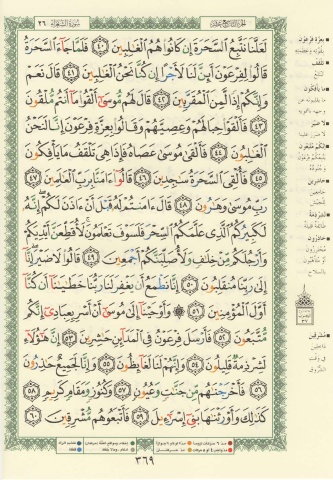 الجزء التاسع عشر
سورة الشعراء ٢٦
لَعَلَّنَا نَتَّبِعُ ٱلسَّحَرَةَ إِن كَانُوا۟ هُمُ ٱلْغَـٰلِبِينَ ٤٠ فَلَمَّا جَآءَ ٱلسَّحَرَةُ
قَالُوا۟ لِفِرْعَوْنَ أَئِنَّ لَنَا لَأَجْرًا إِن كُنَّا نَحْنُ ٱلْغَـٰلِبِينَ ٤١ قَالَ نَعَمْ
وَإِنَّكُمْ إِذًا لَّمِنَ ٱلْمُقَرَّبِينَ ٤٢ قَالَ لَهُم مُّوسَىٰٓ أَلْقُوا۟ مَآ أَنتُم مُّلْقُونَ
٤٣ فَأَلْقَوْا۟ حِبَالَهُمْ وَعِصِيَّهُمْ وَقَالُوا۟ بِعِزَّةِ فِرْعَوْنَ إِنَّا لَنَحْنُ
ٱلْغَـٰلِبُونَ ٤٤ فَأَلْقَىٰ مُوسَىٰ عَصَاهُ فَإِذَا هِىَ تَلْقَفُ مَا يَأْفِكُونَ
٤٥ فَأُلْقِىَ ٱلسَّحَرَةُ سَـٰجِدِينَ ٤٦ قَالُوٓا۟ ءَامَنَّا بِرَبِّ ٱلْعَـٰلَمِينَ ٤٧
رَبِّ مُوسَىٰ وَهَـٰرُونَ ٤٨ قَالَ ءَامَنتُمْ لَهُۥ قَبْلَ أَنْ ءَاذَنَ لَكُمْ إِنَّهُۥ
لَكَبِيرُكُمُ ٱلَّذِى عَلَّمَكُمُ ٱلسِّحْرَ فَلَسَوْفَ تَعْلَمُونَ لَأُقَطِّعَنَّ أَيْدِيَكُمْ
وَأَرْجُلَكُم مِّنْ خِلَـٰفٍ وَلَأُصَلِّبَنَّكُمْ أَجْمَعِينَ ٤٩ قَالُوا۟ لَا ضَيْرَ إِنَّآ
إِلَىٰ رَبِّنَا مُنقَلِبُونَ ٥٠ إِنَّا نَطْمَعُ أَن يَغْفِرَ لَنَا رَبُّنَا خَطَـٰيَـٰنَآ أَن كُنَّآ
أَوَّلَ ٱلْمُؤْمِنِينَ ٥١ وَأَوْحَيْنَآ إِلَىٰ مُوسَىٰٓ أَنْ أَسْرِ بِعِبَادِىٓ إِنَّكُم
مُّتَّبَعُونَ ٥٢ فَأَرْسَلَ فِرْعَوْنُ فِى ٱلْمَدَآئِنِ حَـٰشِرِينَ ٥٣ إِنَّ هَـٰٓؤُلَآءِ
لَشِرْذِمَةٌ قَلِيلُونَ ٥٤ وَإِنَّهُمْ لَنَا لَغَآئِظُونَ ٥٥ وَإِنَّا لَجَمِيعٌ حَـٰذِرُونَ
٥٦ فَأَخْرَجْنَـٰهُم مِّن جَنَّـٰتٍ وَعُيُونٍ ٥٧ وَكُنُوزٍ وَمَقَامٍ كَرِيمٍ ٥٨
كَذَٰلِكَ وَأَوْرَثْنَـٰهَا بَنِىٓ إِسْرَٰٓءِيلَ ٥٩ فَأَتْبَعُوهُم مُّشْرِقِينَ ٦٠
بعزة فرعون
بقوته وعظمته
تلقف
تبتلع
ما يأفكون
لا ضير
إنكم متبعون
حاشرين
لشرذمة
طائفة قليلة
حاذرون
مشرقين
٣٦٩